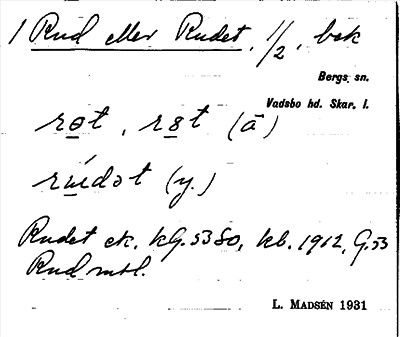 1 Rud eller Rudet, 1/2, bek
Bergs sn.
Vadsbo hd. Skar. l.
rɵt, rɵt (ā)
ruɩ́dət (y.)
Rudet ek, kG. 53 So, kb. 1912, G. 53
Rud mtl.
L. MADSÉN 1931